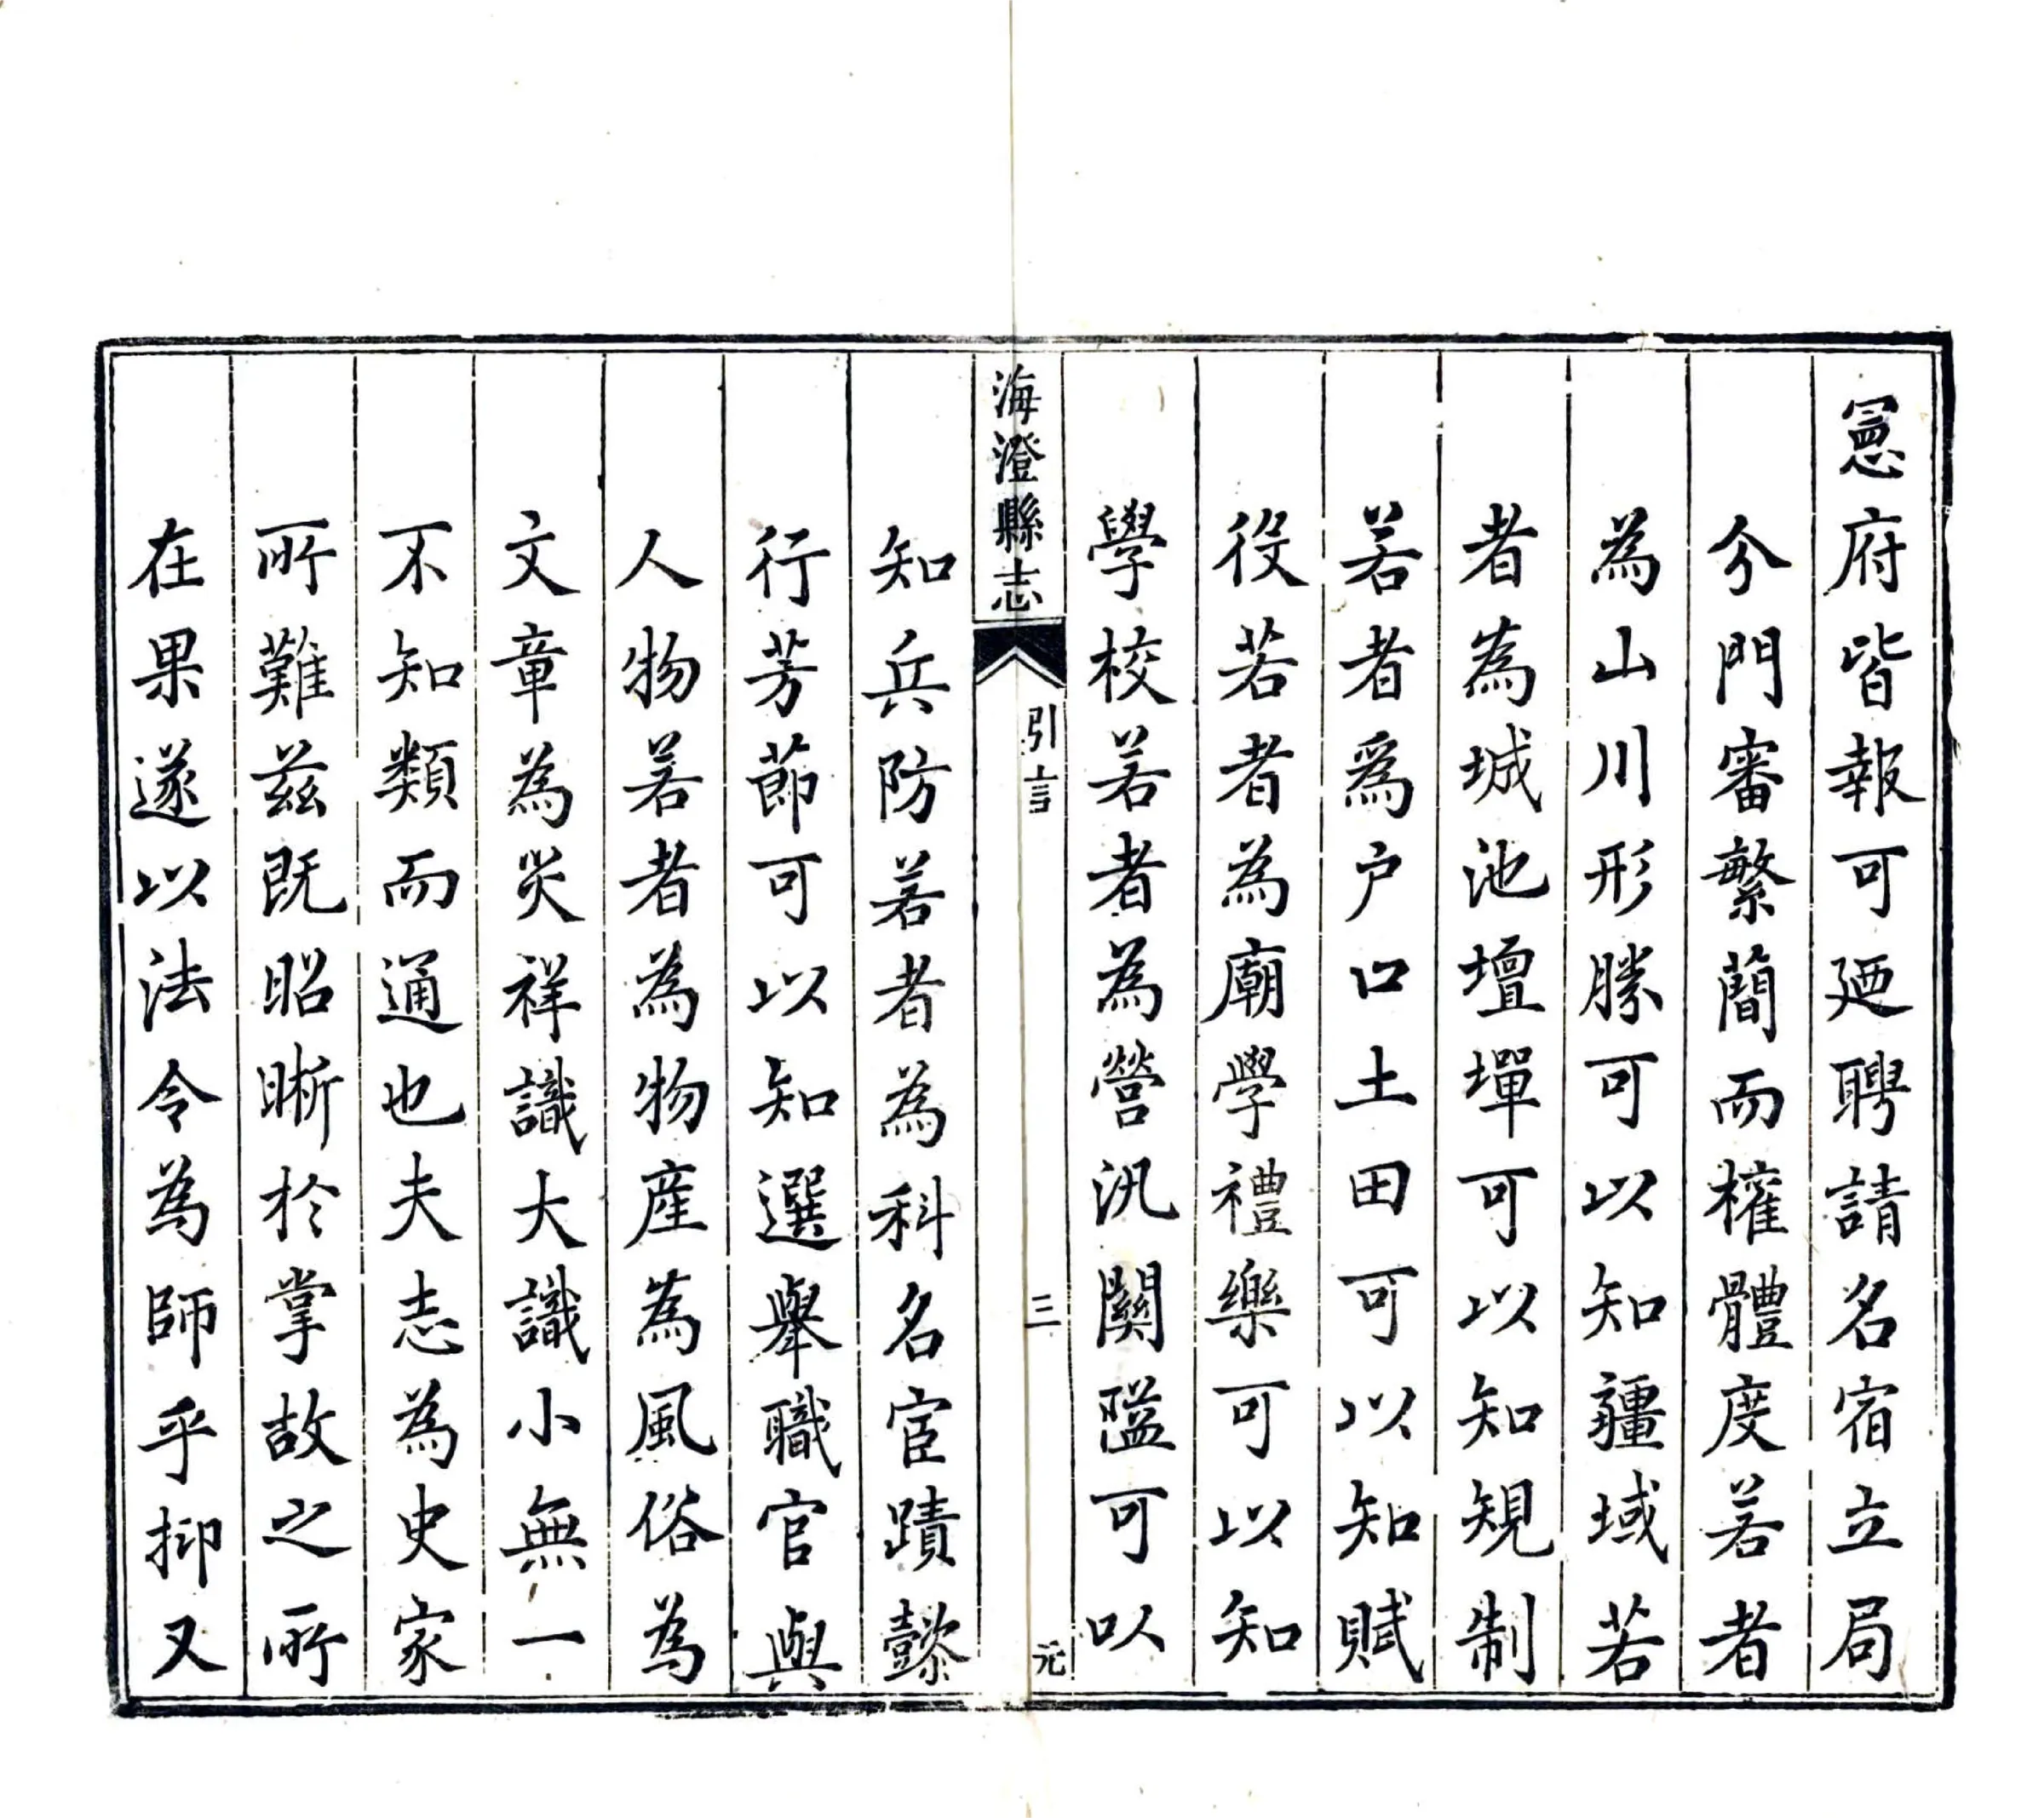 憲府皆報可廼聘請名宿立局
分門審繁蕳而榷體度若者
為山川形勝可以知疆域若
者為城池壇墠可以知規制
若者爲户口土田可以知賦
役若者為廟學禮樂可以知
學校若者為營汛關隘可以
海澄縣志
引言
三
元
知兵防若者為科名宦蹟懿
行芳節可以知選舉職官與
人物若者為物産為風俗為
文章為災祥識大識小無一
不知類而通也夫志為史家
所難兹既昭晰於掌故之所
在果遂以法令為師乎抑又